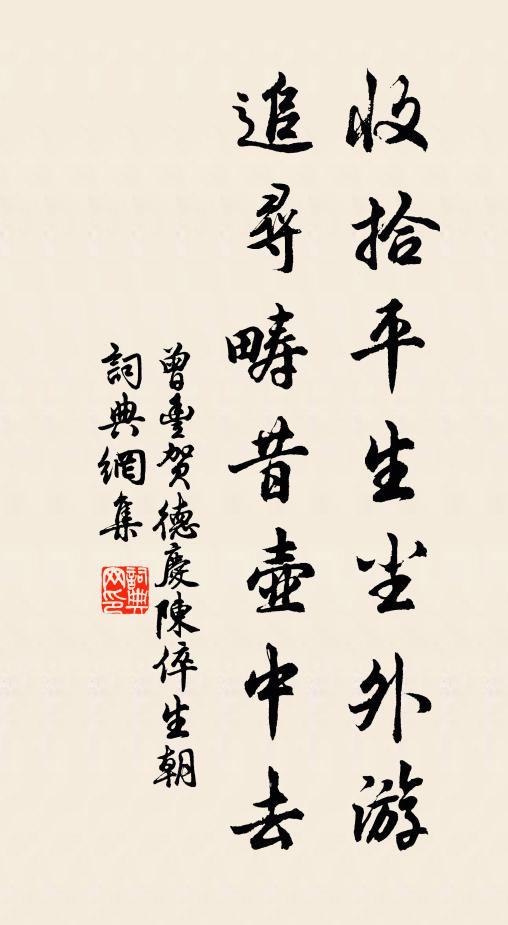 收拾平生尘外游
追尋畴昔壺中去
曾豊贺德慶陳倅生朝
詞典網集
詞典网印